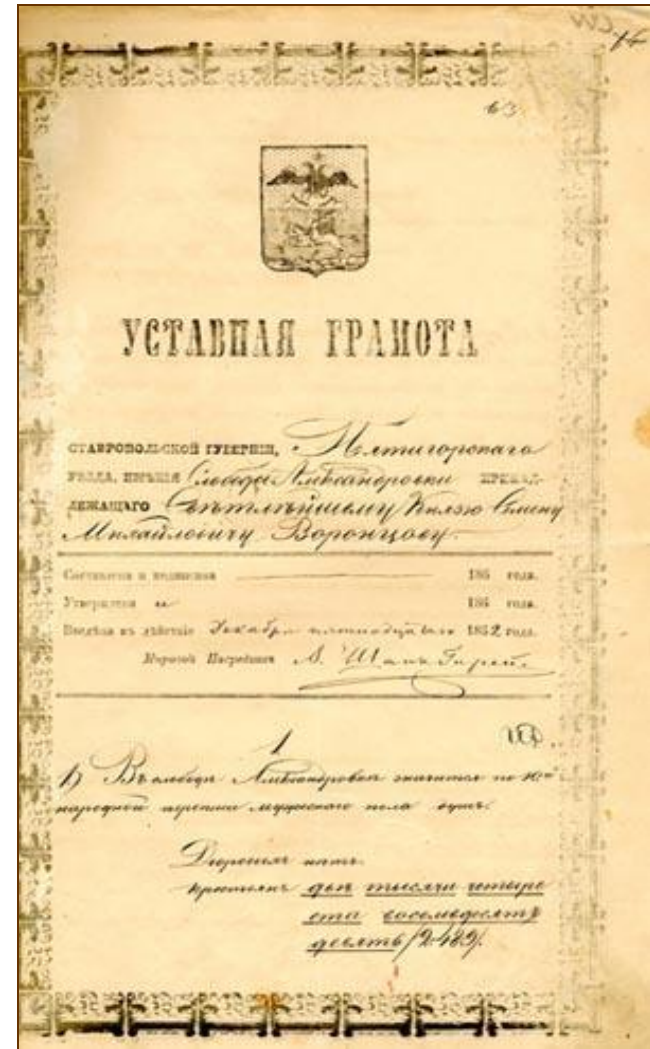 14
63
УСТАВНАЯ ГРАМОТА
СТАВРОПОЛЬСКОЙ ГУБЕРНІИ, Пятигорскаго
УѢЗДА, ИМѢНІЯ Слобода Александровки ПРИНАД-
ЛЕЖАЩАГО Свѣтлѣйшему Князю Семену
Михайловичу Воронцову
Составлена и подписана 186 года.
Утверждена 186 года.
Введена въ дѣйствіе Декабря пятнадцатаго 1862 года.
Мировой Посредникъ А. Шанъ Гирей
1
1) Въ слободѣ Александровкѣ значится по 10й
народной переписи мужескаго пола душъ:
Дворовыхъ нѣтъ.
Крестьянъ двѣ тысячи четыре
ста восемьдесятъ
девять /2.489/.